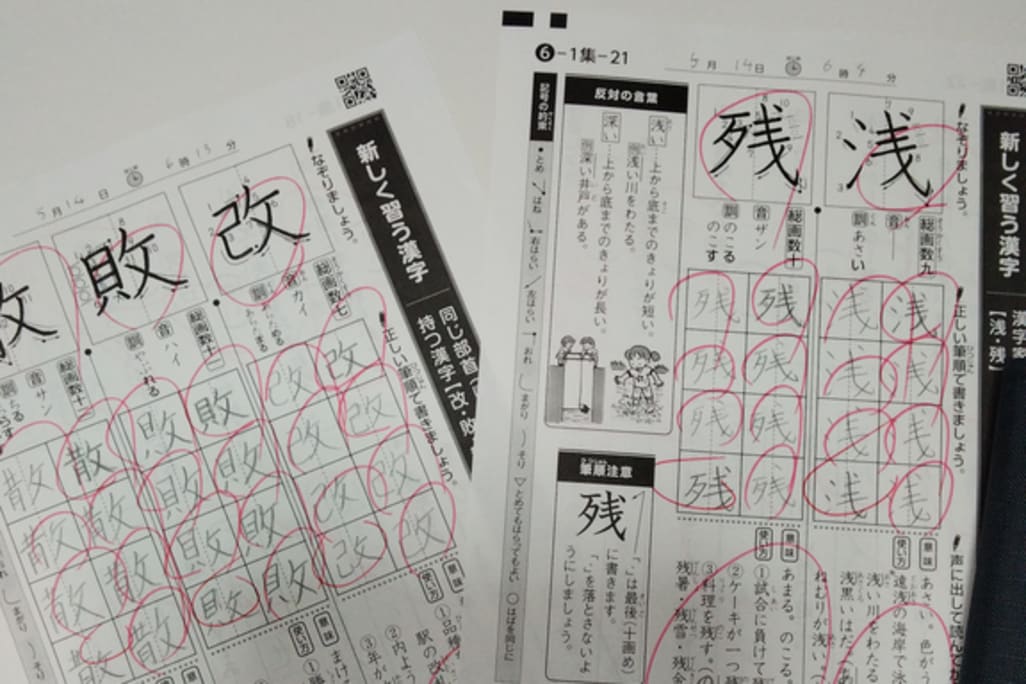 新しく習う漢字
同じ部首
持つ漢字【改・敗
なぞりましょう。
5月14日 6時13分
改
敗
総画数七
音カイ
総画数十一
音ハイ
訓やぶれる
音サン
正しい筆順で書きましょう。
改 改
改 改
改 改
改 改
敗 敗
敗 敗
敗 敗
敗 敗
散 散
散 散
散 散
散 散
意味
使い方
駅の改
意味
使い方
6-1集-21
5月14日 6時9分
新しく習う漢字
【浅・残】
なぞりましょう。
浅
残
総画数九
音
訓あさい
総画数十
音ザン
訓のこる
のこす
正しい筆順で書きましょう。
浅 浅
浅 浅
浅 浅
浅 浅
残 残
残 残
残 残
残 残
声に出して読んで
意味
使い方
あさい。色がう
遠浅の海岸で泳
浅い川をわたる
浅黒いはだ
ねむりが浅い
意味
使い方
あまる。のこる
①試合に負けて残
②ケーキが一つ残
③料理を残す。の
残暑・残雪・残金
反対の言葉
浅い…上から底までのきょりが短い。
例浅い川をわたる。
深い…上から底までのきょりが長い。
例深い井戸がある。
筆順注意
残
「、」は最後(十画め)
に書きます。
「、」を落とさないよ
うにしましょう。
記号の約束
・とめ
はね
右はらい
左はらい
おれ
まがり
そり
▽とめてもはらってもよい
○はばを同じに